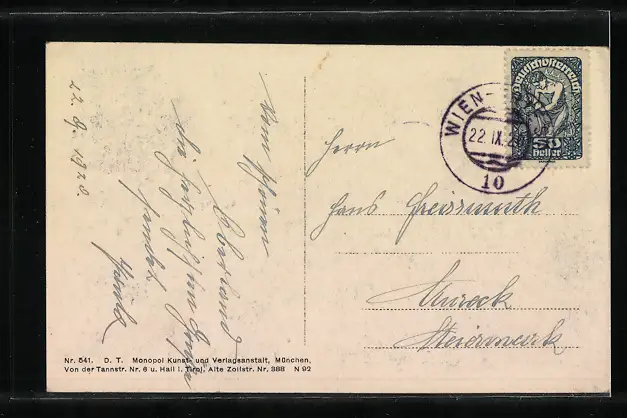 22. 9. 1920.
vom schönen
Oberland
die
sendet
Herrn
Hans Greissmuth
Mureck
Steiermark
WIEN-
22. IX. 2
10
Deutschösterreich
50
Heller
Nr. 541. D. T. Monopol Kunst- und Verlagsanstalt, München,
Von der Tannstr. Nr. 6 u. Hall i. Tirol, Alte Zollstr. Nr. 388 N 92